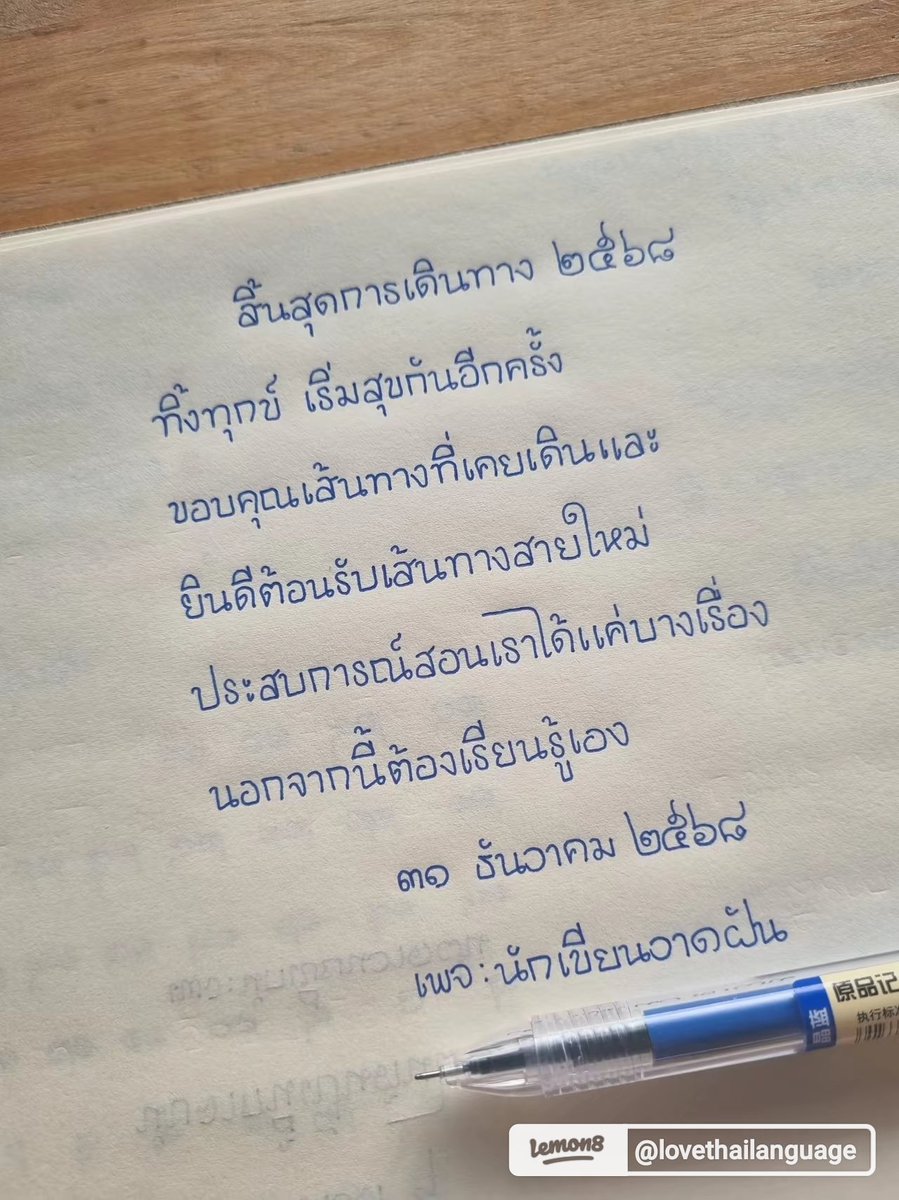 สิ้นสุดการเดินทาง ๒๕๖๘
ทิ้งทุกข์ เริ่มสุขกันอีกครั้ง
ขอบคุณเส้นทางที่เคยเดินและ
ยินดีต้อนรับเส้นทางสายใหม่
ประสบการณ์สอนเราได้แค่บางเรื่อง
นอกจากนี้ต้องเรียนรู้เอง
๓๑ ธันวาคม ๒๕๖๘
เพจ:นักเขียนวาดฝัน
原品记
执行标准
晶蓝
lemon8 @lovethailanguage